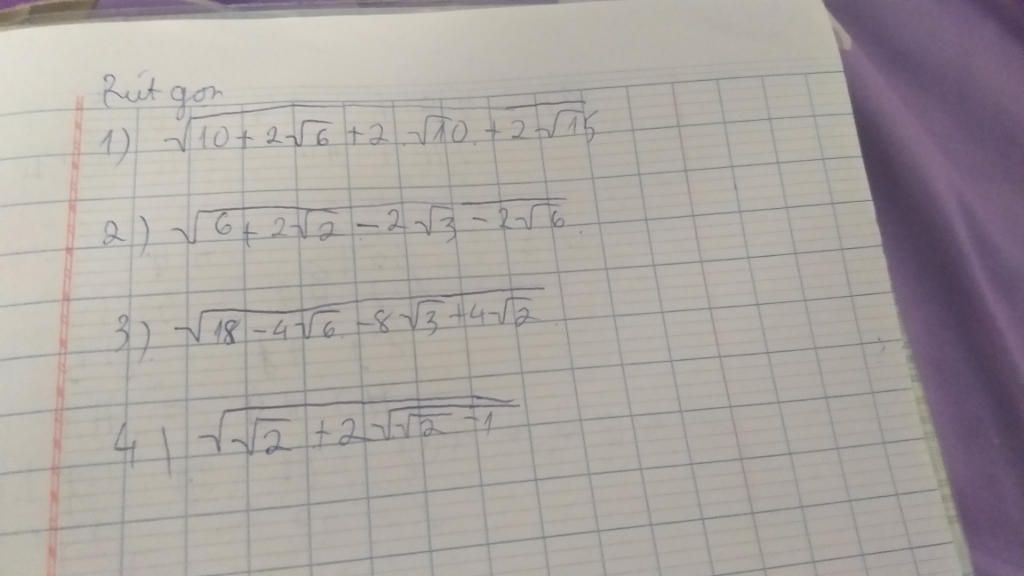 Rút gọn
1) √(10 + 2√6 + 2.√10 + 2√15)
2) √(6 + 2√2 - 2√3 - 2√6)
3) √(18 - 4√6 - 8√3 + 4√2)
4) √(√2 + 2√(√2 - 1))